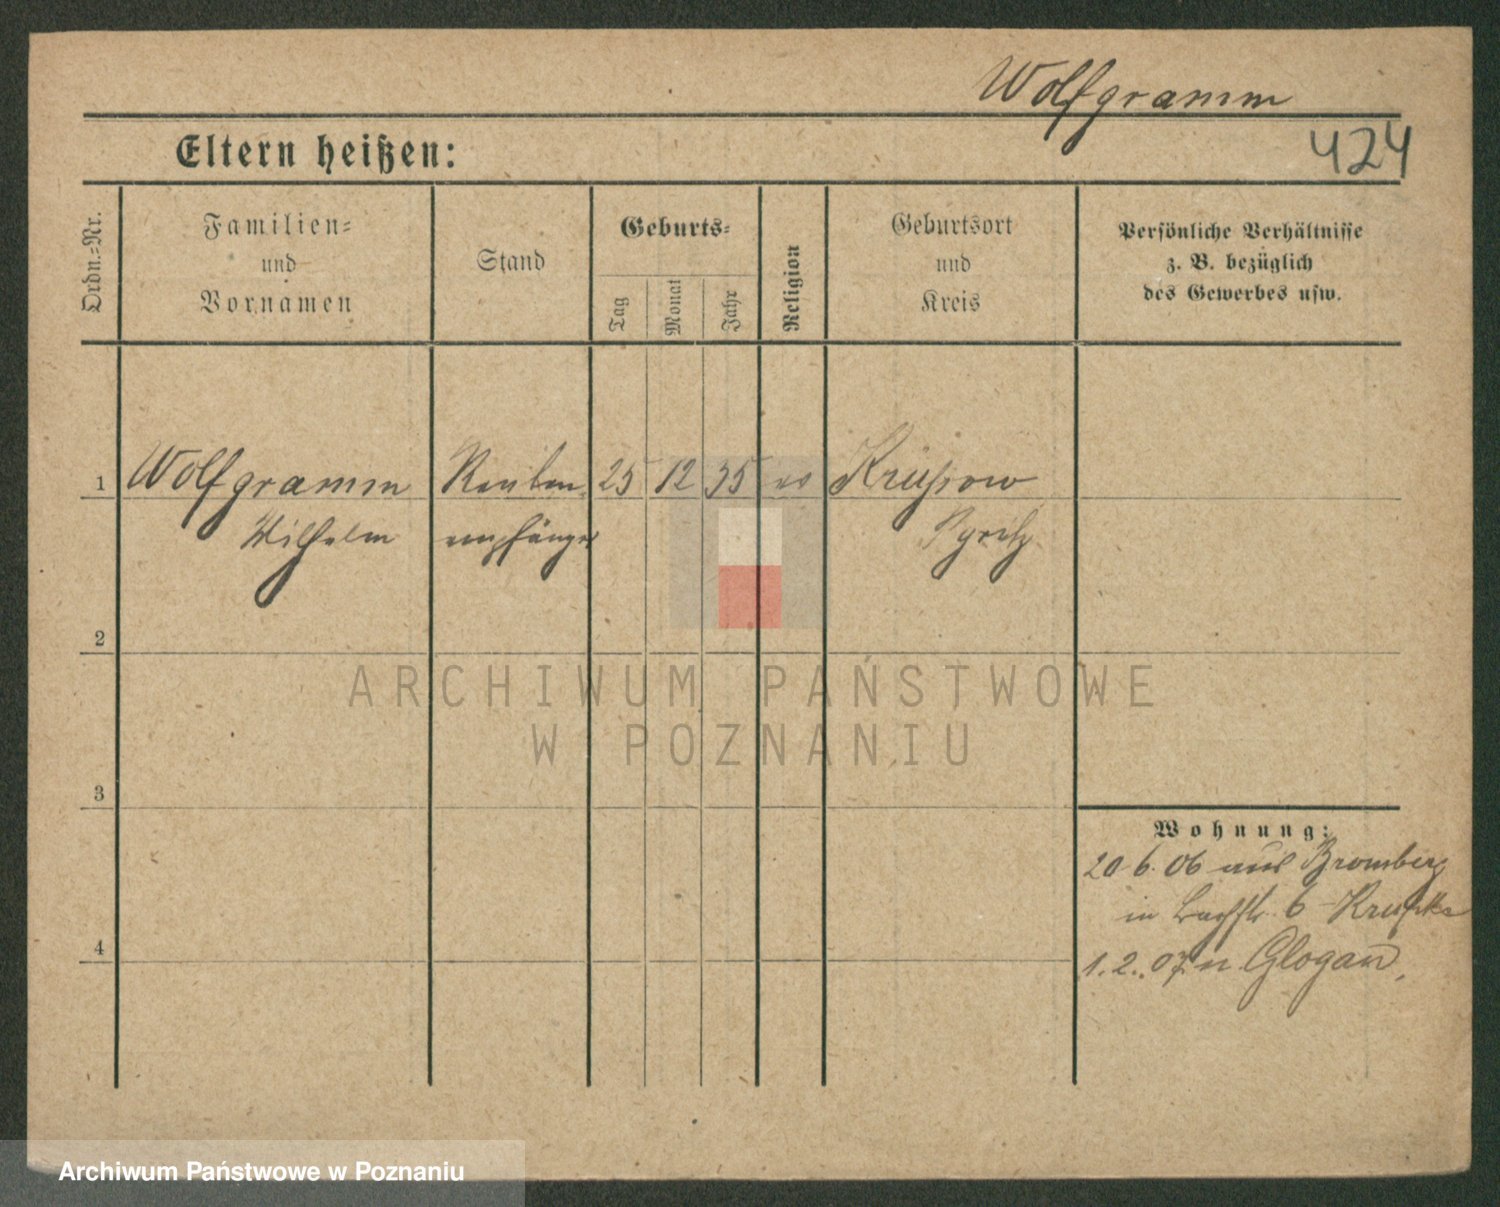 Wolfgramm
424
Eltern heißen:
Ordn.=Nr.
Familien=
und
Vornamen
Stand
Geburts=
Tag
Monat
Jahr
Religion
Geburtsort
und
Kreis
Persönliche Verhältnisse
z. B. bezüglich
des Gewerbes usw.
1 Wolfgramm Renten 25 12 35 ev Krüssow
Wilhelm empfänger Pyritz
2
3
4
Wohnung:
20 6. 06 aus Bromberg
in Bachstr. 6
1. 2. 07. n Glogau
ARCHIWUM PAŃSTWOWE
W POZNANIU
Archiwum Państwowe w Poznaniu